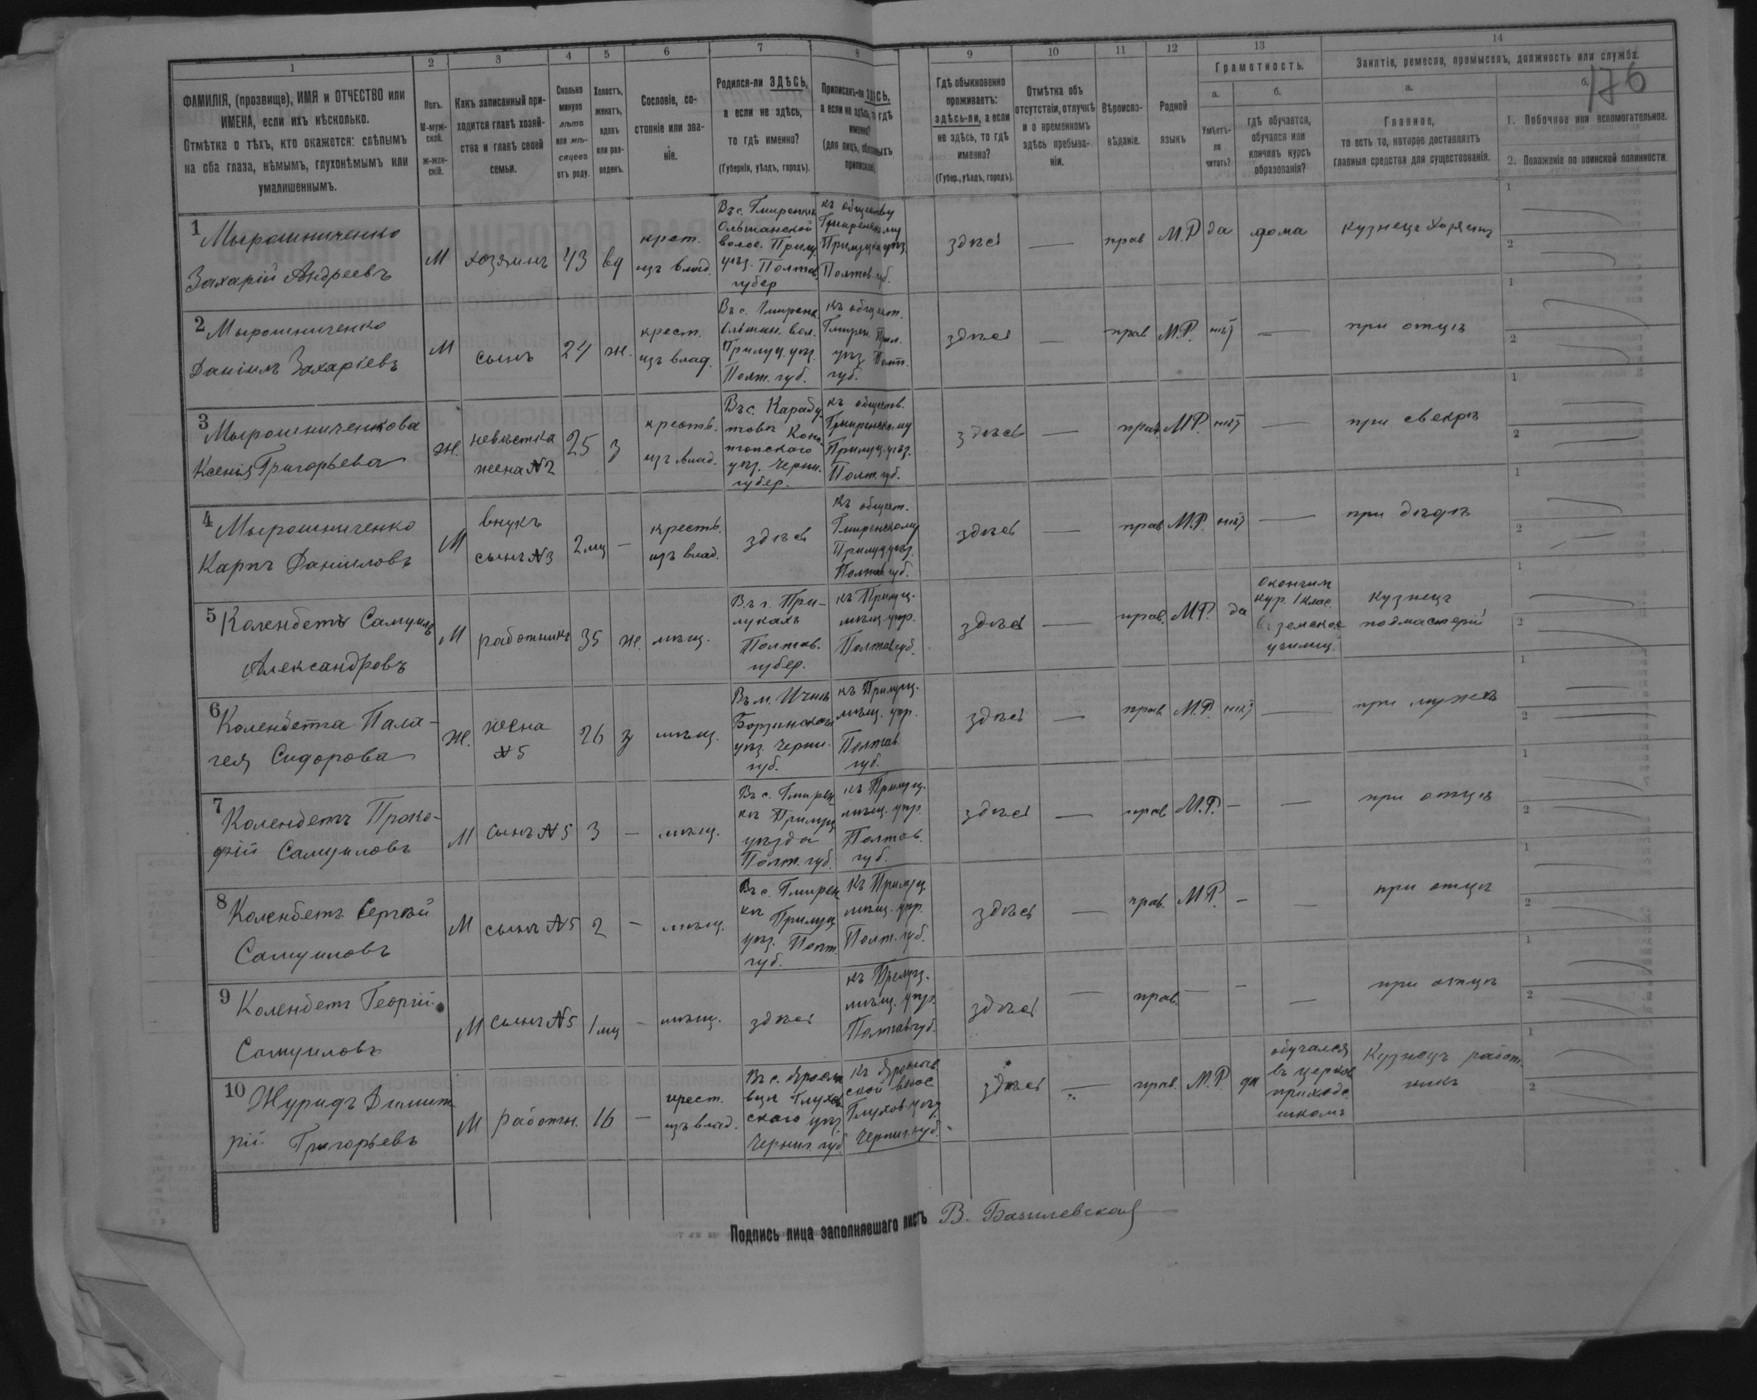 176
1 2 3 4 5 6 7 8 9 10 11 12 13 14
ФАМИЛІЯ, (прозвище), ИМЯ и ОТЧЕСТВО или
ИМЕНА, если ихъ нѣсколько.
Отмѣтка о тѣхъ, кто окажется: слѣпымъ
на оба глаза, нѣмымъ, глухонѣмымъ или
умалишеннымъ.
Полъ.
М-муж-
ской.
Ж-жен-
скій.
Какъ записанный при-
ходится главѣ хозяй-
ства и главѣ своей
семьи.
Сколько
минуло
лѣтъ
или мѣ-
сяцевъ
отъ роду.
Холостъ,
женатъ,
вдовъ
или раз-
веденъ.
Сословіе, со-
стояніе или зва-
ніе.
Родился-ли ЗДѢСЬ,
а если не здѣсь,
то гдѣ именно?
(Губернія, уѣздъ, городъ).
Приписанъ-ли ЗДѢСЬ,
а если не здѣсь, то гдѣ
именно?
(для лицъ, обязанныхъ
припискою)
Гдѣ обыкновенно
проживаетъ:
здѣсь-ли, а если
не здѣсь, то гдѣ
именно?
(Губер., уѣздъ, городъ).
Отмѣтка объ
отсутствіи, отлучкѣ
и о временномъ
здѣсь пребыва-
ніи.
Вѣроиспо-
вѣданіе.
Родной
языкъ
Грамотность.
а.
Умѣетъ-
ли
читать?
б.
Гдѣ обучается,
обучался или
кончилъ курсъ
образованія?
Занятіе, ремесло, промыселъ, должность или служба.
а.
Главное,
то есть то, которое доставляетъ
главныя средства для существованія.
б.
1. Побочное или вспомогательное.
2. Положеніе по воинской повинности.
1 Мырошниченко
Захарій Андреевъ
М
хозяинъ
43
вд
крест.
изъ влад.
Въ с. Гмирянкѣ
Ольшанской
волос. Прилу.
уѣз. Полтав.
губер
къ обществу
Гмирянскому
Прилуцк. уѣз.
Полтав. губ.
здѣсь
—
прав
М.Р
да
дома
кузнецъ хозяинъ
1
2
2 Мырошниченко
Даніилъ Захаріевъ
М
сынъ
24
ж.
крест.
изъ влад.
Въ с. Гмирянк
ольшан. вол.
Прилуц. уѣз.
Полт. губ.
къ общест.
Гмирян. Прил.
уѣз. Полт.
губ.
здѣсь
—
прав
М.Р.
нѣт
—
при отцѣ
1
2
3 Мырошниченкова
Ксенія Григорьева
ж.
невѣстка
жена №2
25
з
крестъ.
изъ влад.
Въ с. Карабу-
товѣ Коно-
топскаго
уѣз. Черни.
губер.
къ обществ.
Гмирянскому
Прилуц. уѣз.
Полт. губ.
здѣсь
—
прав
М.Р.
нѣт
—
при свекрѣ
1
2
4 Мырошниченко
Карпъ Даніиловъ
М
внукъ
сынъ №3
2 мц
—
крестъ.
изъ влад.
здѣсь
къ общест.
Гмирянскому
Прилуц уѣз.
Полтав губ.
здѣсь
—
прав
М.Р.
нѣт
—
при дѣдѣ
1
2
5 Колендетъ Самуилъ
Александровъ
М
работникъ
35
ж.
мѣщ.
Въ г. При-
лукахъ
Полтав.
губер.
къ Прилуц.
мѣщ. упр.
Полтав губ.
здѣсь
—
прав.
М.Р.
да
окончил
кур. 1 клас.
въ земском
училищ.
кузнецъ
подмастерій
1
2
6 Колендета Пала-
гея Сидорова
Ж.
жена
№5
26
з
мѣщ.
Въ м. Ичнѣ
Борзинскаго
уѣз. Черни.
губ.
къ Прилуц.
мѣщ. упр.
Полтав
губ.
здѣсь
—
прав.
М.Р.
нѣт
—
при мужѣ
1
2
7 Колендетъ Проко-
фій Самуиловъ
М
сынъ №5
3
—
мѣщ.
Въ с. Гмирян
кѣ Прилуц
уѣзда
Полт. губ.
къ Прилуц.
мѣщ. упр.
Полтав.
губ.
здѣсь
—
прав
М.Р.
—
—
при отцѣ
1
2
8 Колендетъ Сергѣй
Самуиловъ
М
сынъ №5
2
—
мѣщ.
Въ с. Гмирян
кѣ Прилуц
уѣз. Полт
губ.
къ Прилуц
мѣщ. упр.
Полт. губ.
здѣсь
—
прав.
М.Р.
—
—
при отцѣ
1
2
9 Колендетъ Георгій
Самуиловъ
М
сынъ №5
1 мц
—
мѣщ.
здѣсь
къ Прилуц.
мѣщ. упр.
Полтав губ.
здѣсь
—
прав.
—
—
—
при отцѣ
1
2
10 Журидъ Димит
рій Григорьевъ
М
работн.
16
—
крест.
изъ влад.
Въ с. Яросла
вцѣ Глухов
скаго уѣз.
Черниг губ
къ Ярослав
ской волос
Глухов. уѣз
Черниг губ.
здѣсь
—
прав.
М.Р
да
обучался
въ церков
приходс.
школѣ
Кузнецъ работ.
никъ
1
2
Подпись лица заполнявшаго листъ В. Базилевская